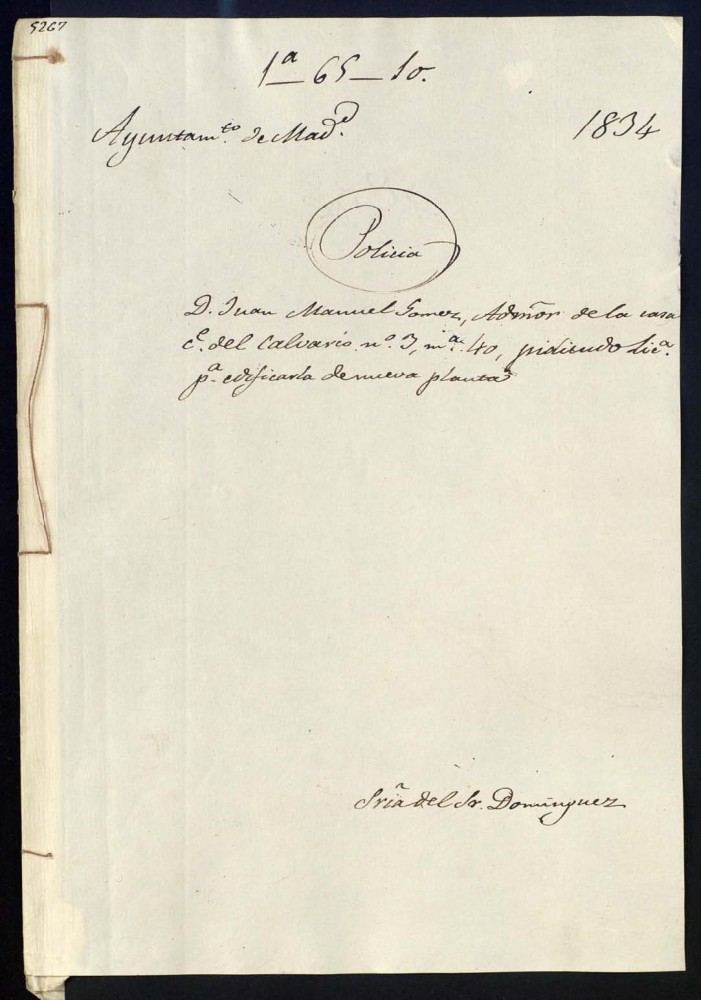 5267
1ª-65-10.
Ayuntam.to de Mad.d
1834
Policia
D. Juan Manuel Gomez, Admõr de la casa
C.e del Calvario nº 3, mª 40, pidiendo lic.ª
p.ª edificarla de nueva planta
Sriã del Sr. Dominguez